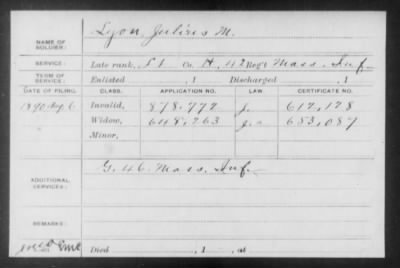 NAME OF SOLDIER: Lyon, Julius M.
SERVICE: Late rank, Co. H, 42 Reg't Mass. Inf.
TERM OF SERVICE: Enlisted , 1 Discharged , 1
DATE OF FILING. CLASS. APPLICATION NO. LAW CERTIFICATE NO.
1890 Aug. 6 Invalid, 878,772 J. 617,178
Widow, 648,263 683,087
Minor,
ADDITIONAL SERVICES: G. 46 Mass. Inf.
REMARKS:
Died , 1 , at